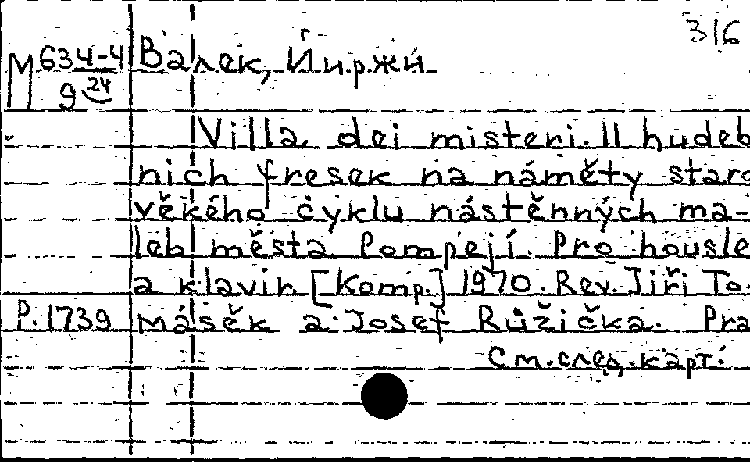 316
М 634-4
9 24
Валек, Йиржи
Villa dei misteri. 11 hudeb
nich fresek na náměty staro
věkého cyklu nástěnných ma-
leb města Pompejí. Pro housle
a klavir. [Komp.] 1970. Rev. Jiři To-
P.1739 mášek a Josef Růžička. Pra
См. след. карт.